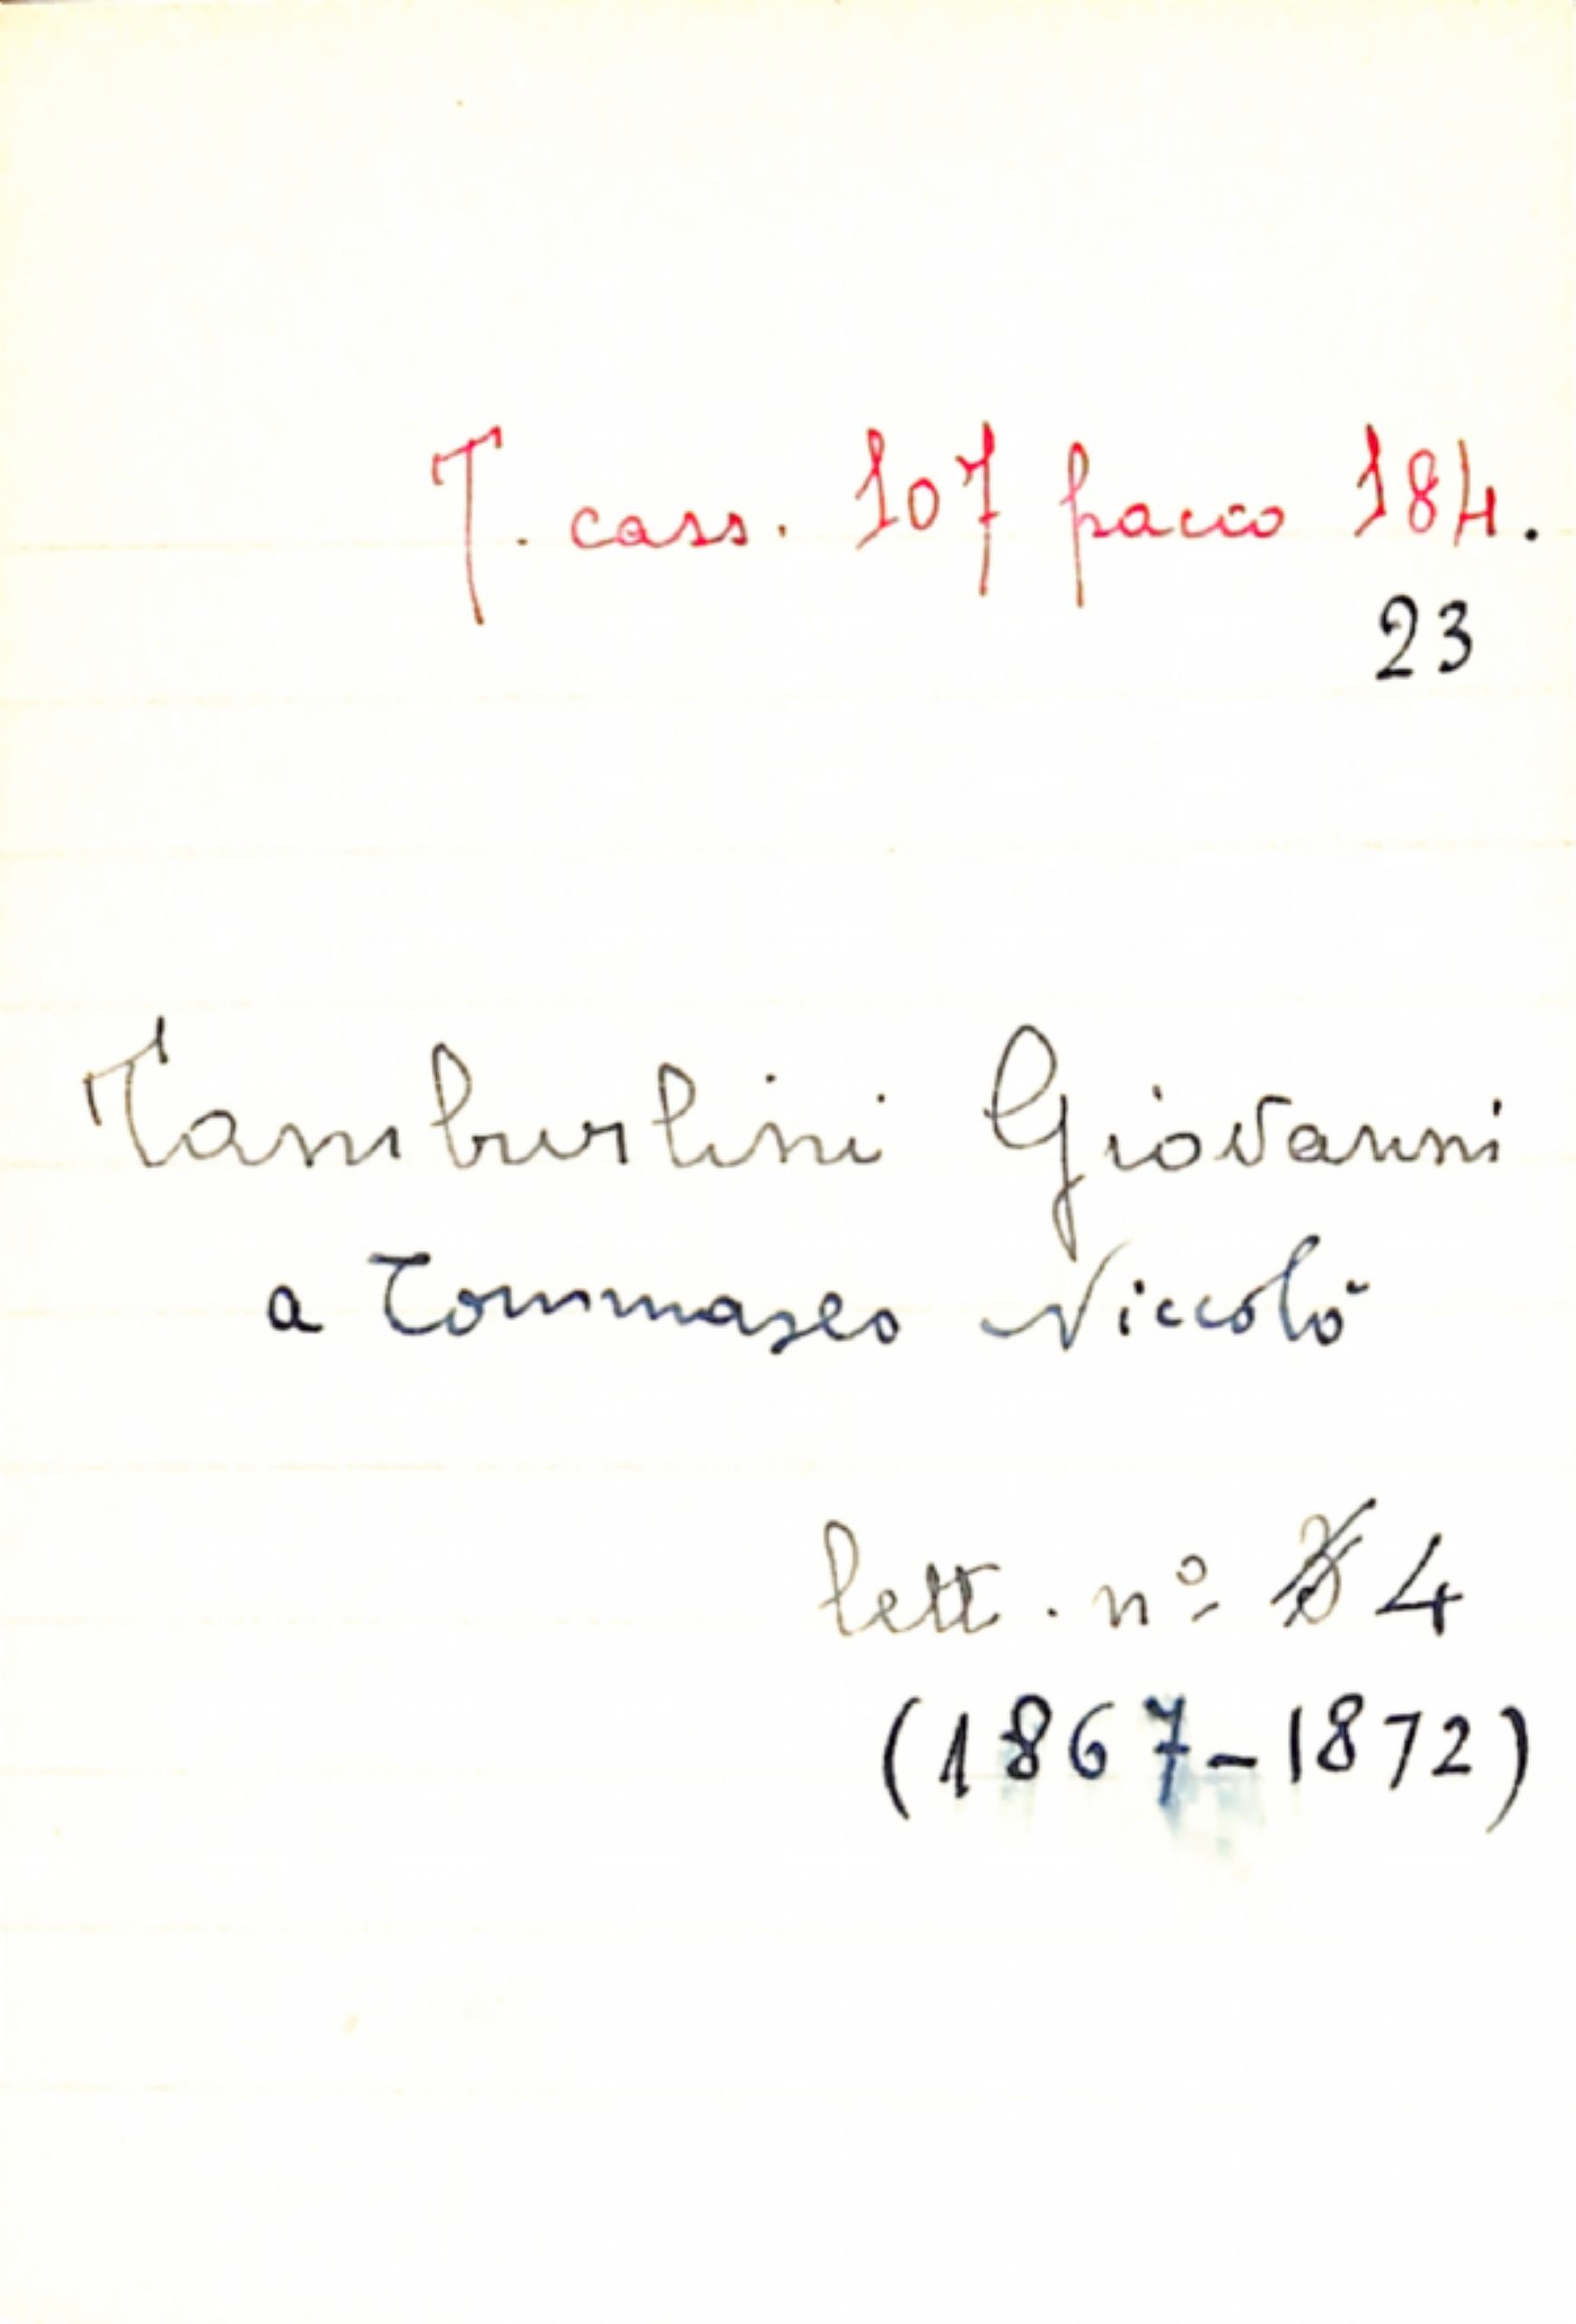 T. cass. 107 pacco 184.
23
Tamburlini Giovanni
a Tommaseo Niccolò
lett. nº 4
(1867-1872)